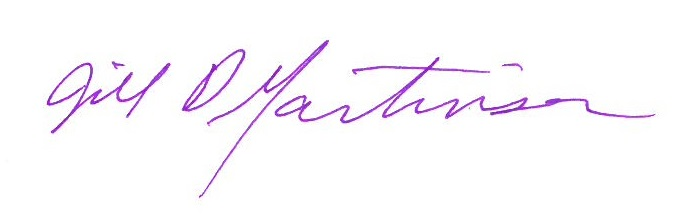 Jill D Martinson